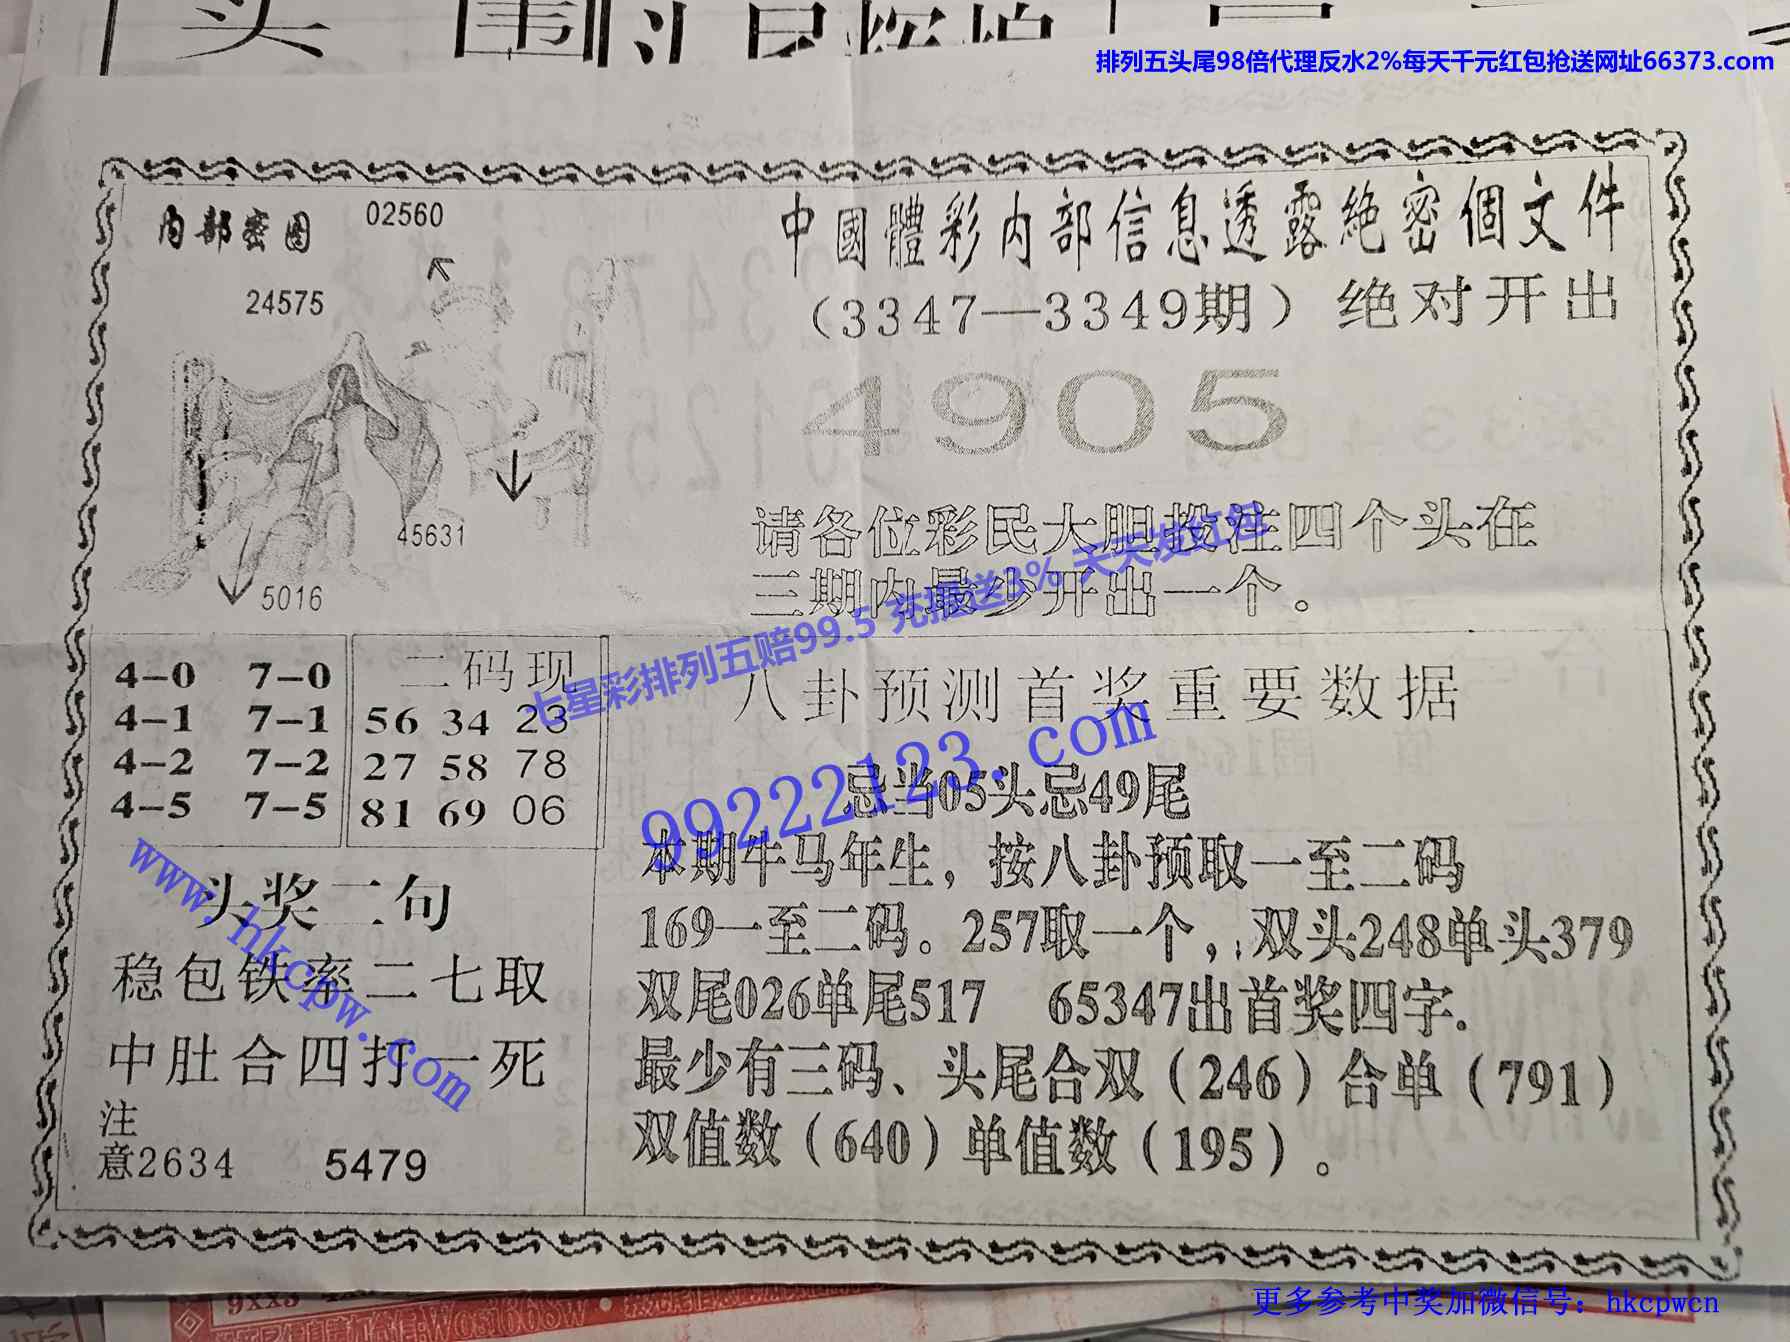 排列五头尾98倍代理反水2%每天千元红包抢送网址66373.com
内部密图
02560
24575
45631
5016
中國體彩内部信息透露絶密個文件
（3347—3349期）绝对开出
4905
请各位彩民大胆投注四个头在
三期内最少开出一个。
七星彩排列五赔99.5 充提送3% 天天发红包
4-0 7-0
4-1 7-1
4-2 7-2
4-5 7-5
二码现
56 34 23
27 58 78
81 69 06
八卦预测首奖重要数据
99222123.com
忌当05头忌49尾
本期牛马年生，按八卦预取一至二码
169一至二码。257取一个，双头248单头379
双尾026单尾517 65347出首奖四字.
最少有三码、头尾合双（246）合单（791）
双值数（640）单值数（195）。
www.hkcpw.com
头奖二句
稳包铁率二七取
中肚合四打一死
注
意2634 5479
更多参考中奖加微信号：hkcpwcn